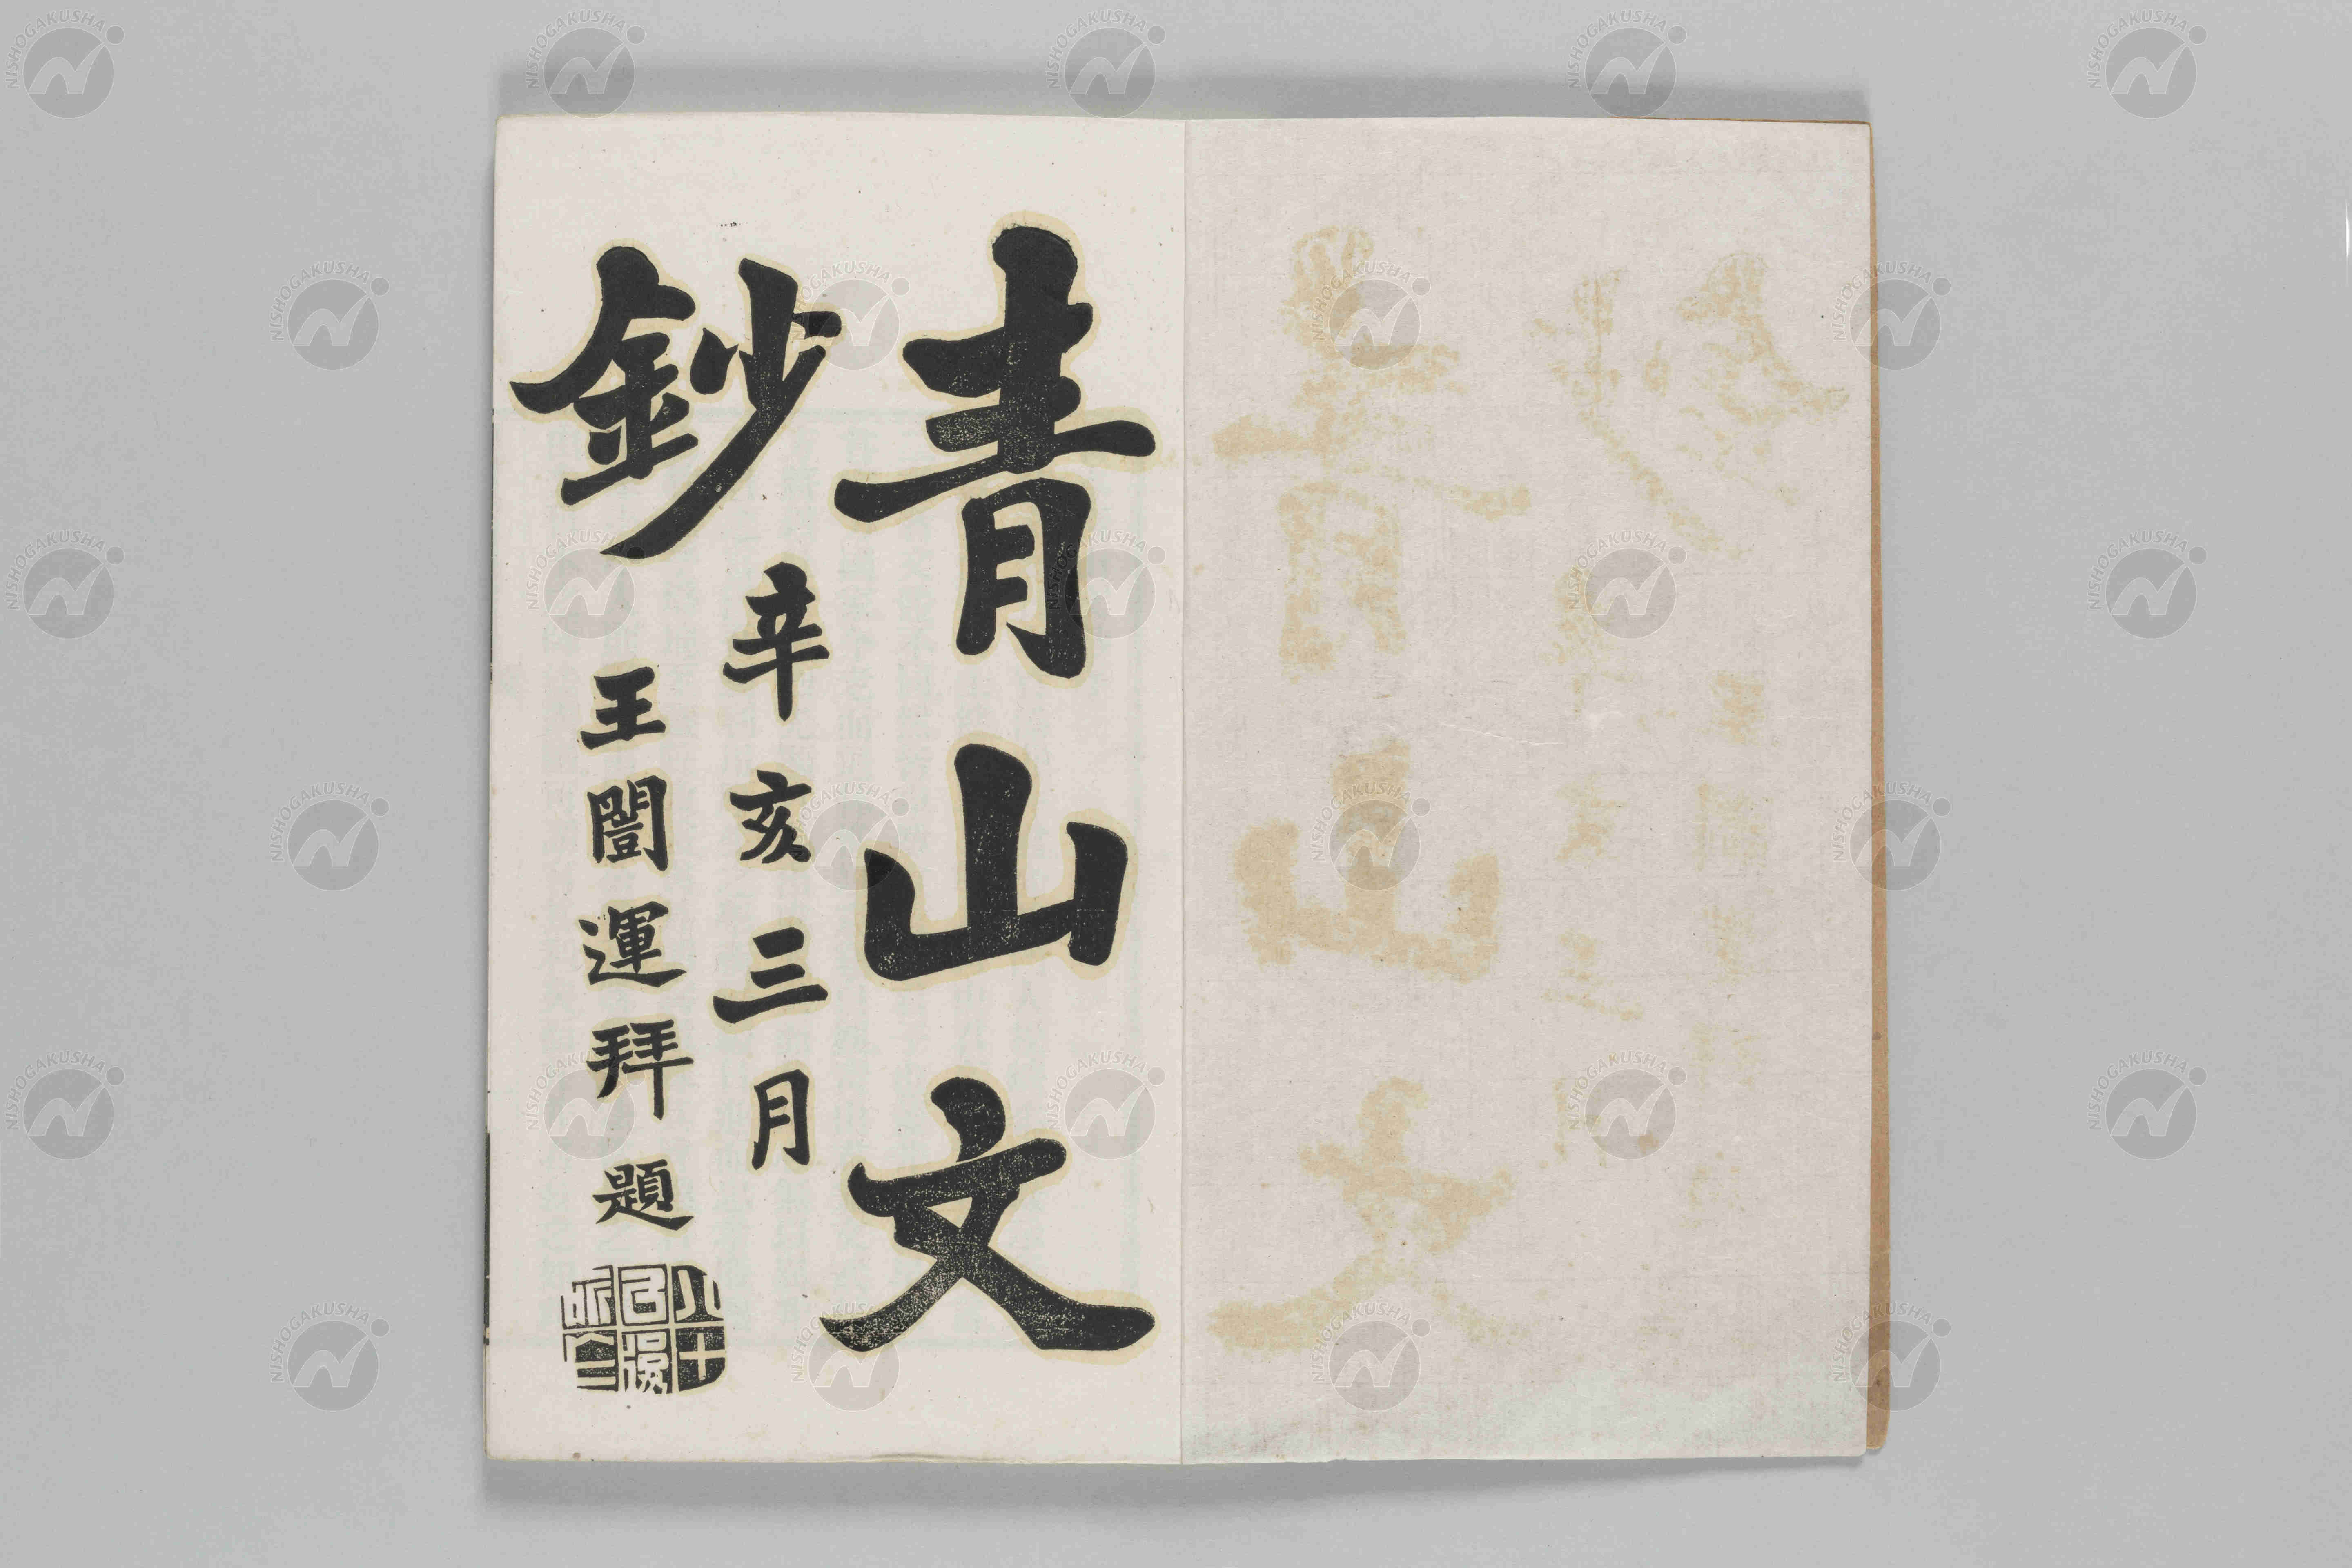 青山文
鈔
辛亥三月
王闓運拜題
NISHOGAKUSHA